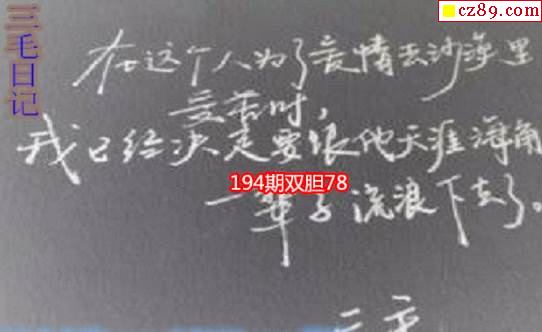 cz89.com
三毛日记
在这个人为了爱情去沙漠里
受苦时,
我已经决定要跟他天涯海角
194期双胆78
一辈子流浪下去了。